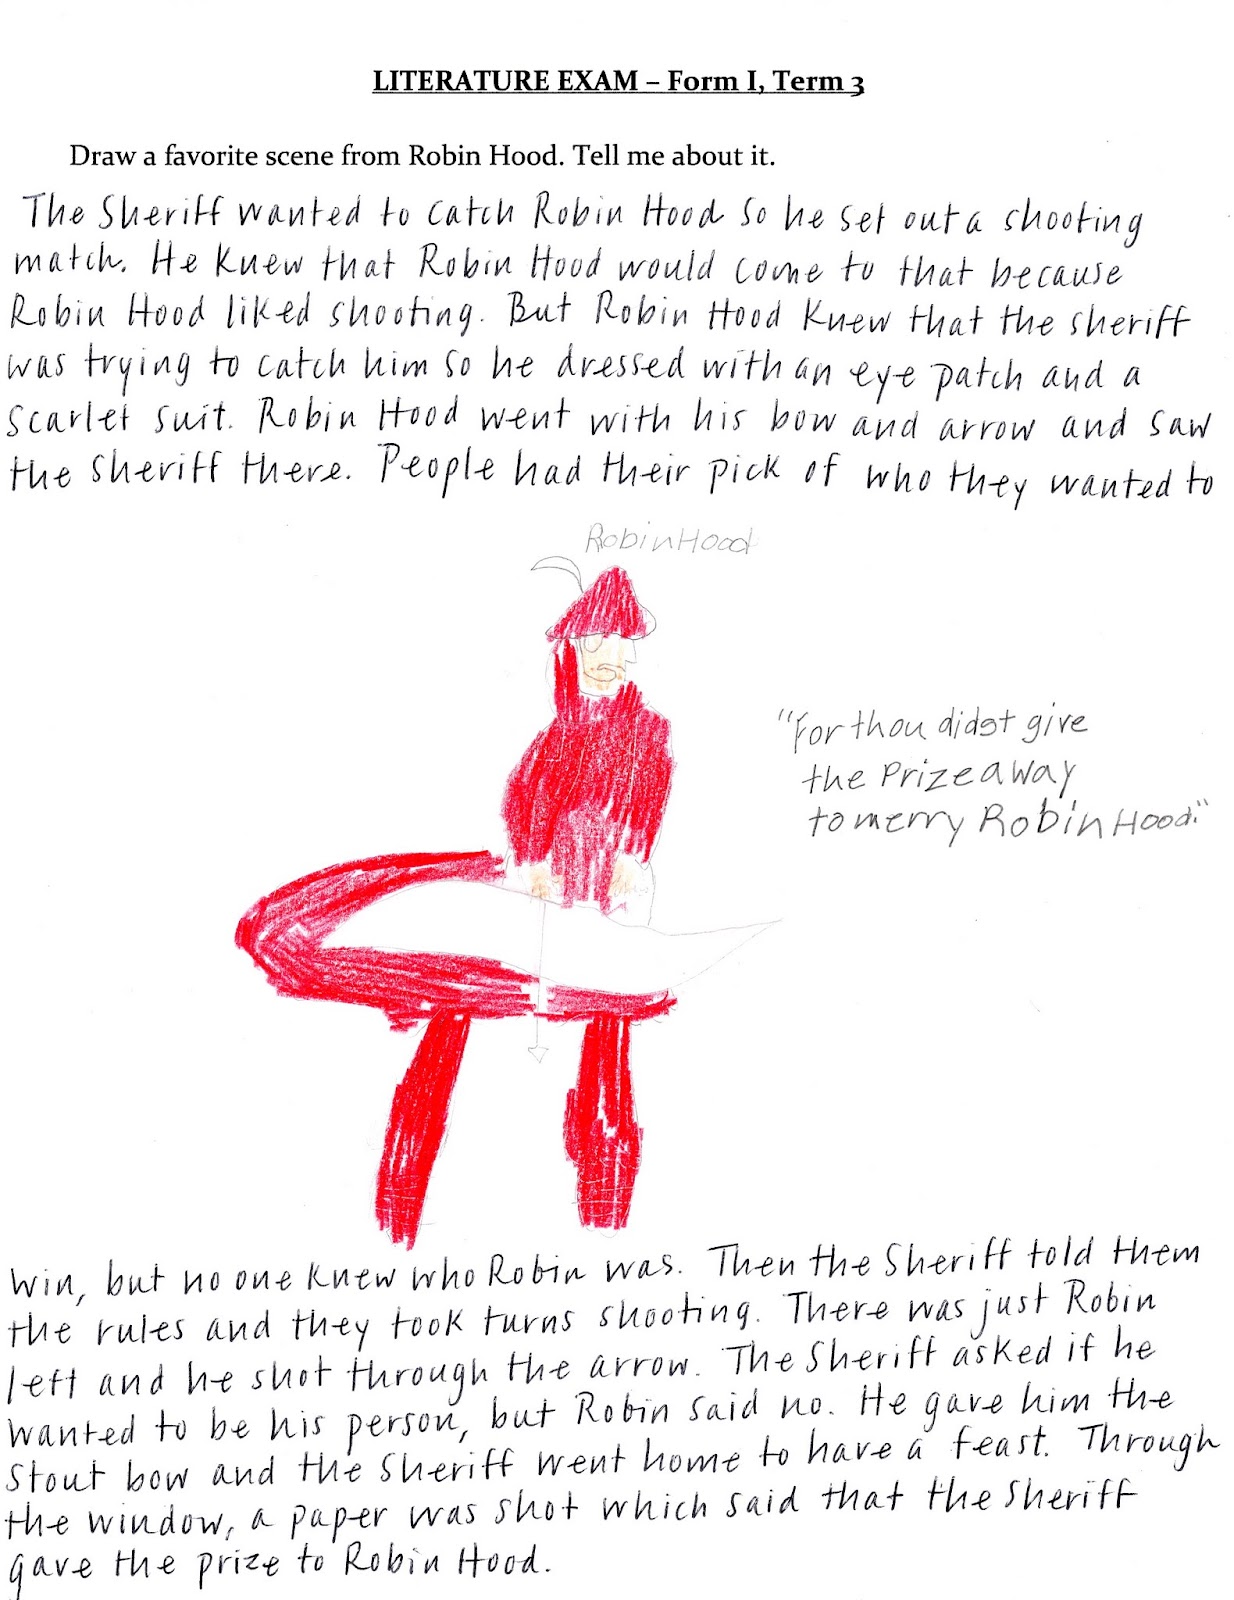 LITERATURE EXAM – Form I, Term 3
Draw a favorite scene from Robin Hood. Tell me about it.
The Sheriff wanted to catch Robin Hood so he set out a shooting
match. He knew that Robin Hood would come to that because
Robin Hood liked shooting. But Robin Hood knew that the sheriff
was trying to catch him so he dressed with an eye patch and a
scarlet suit. Robin Hood went with his bow and arrow and saw
the sheriff there. People had their pick of who they wanted to
Robin Hood
"For thou didst give
the Prize away
to merry Robin Hood."
win, but no one knew who Robin was. Then the Sheriff told them
the rules and they took turns shooting. There was just Robin
left and he shot through the arrow. The Sheriff asked if he
wanted to be his person, but Robin said no. He gave him the
stout bow and the Sheriff went home to have a feast. Through
the window, a paper was shot which said that the Sheriff
gave the prize to Robin Hood.